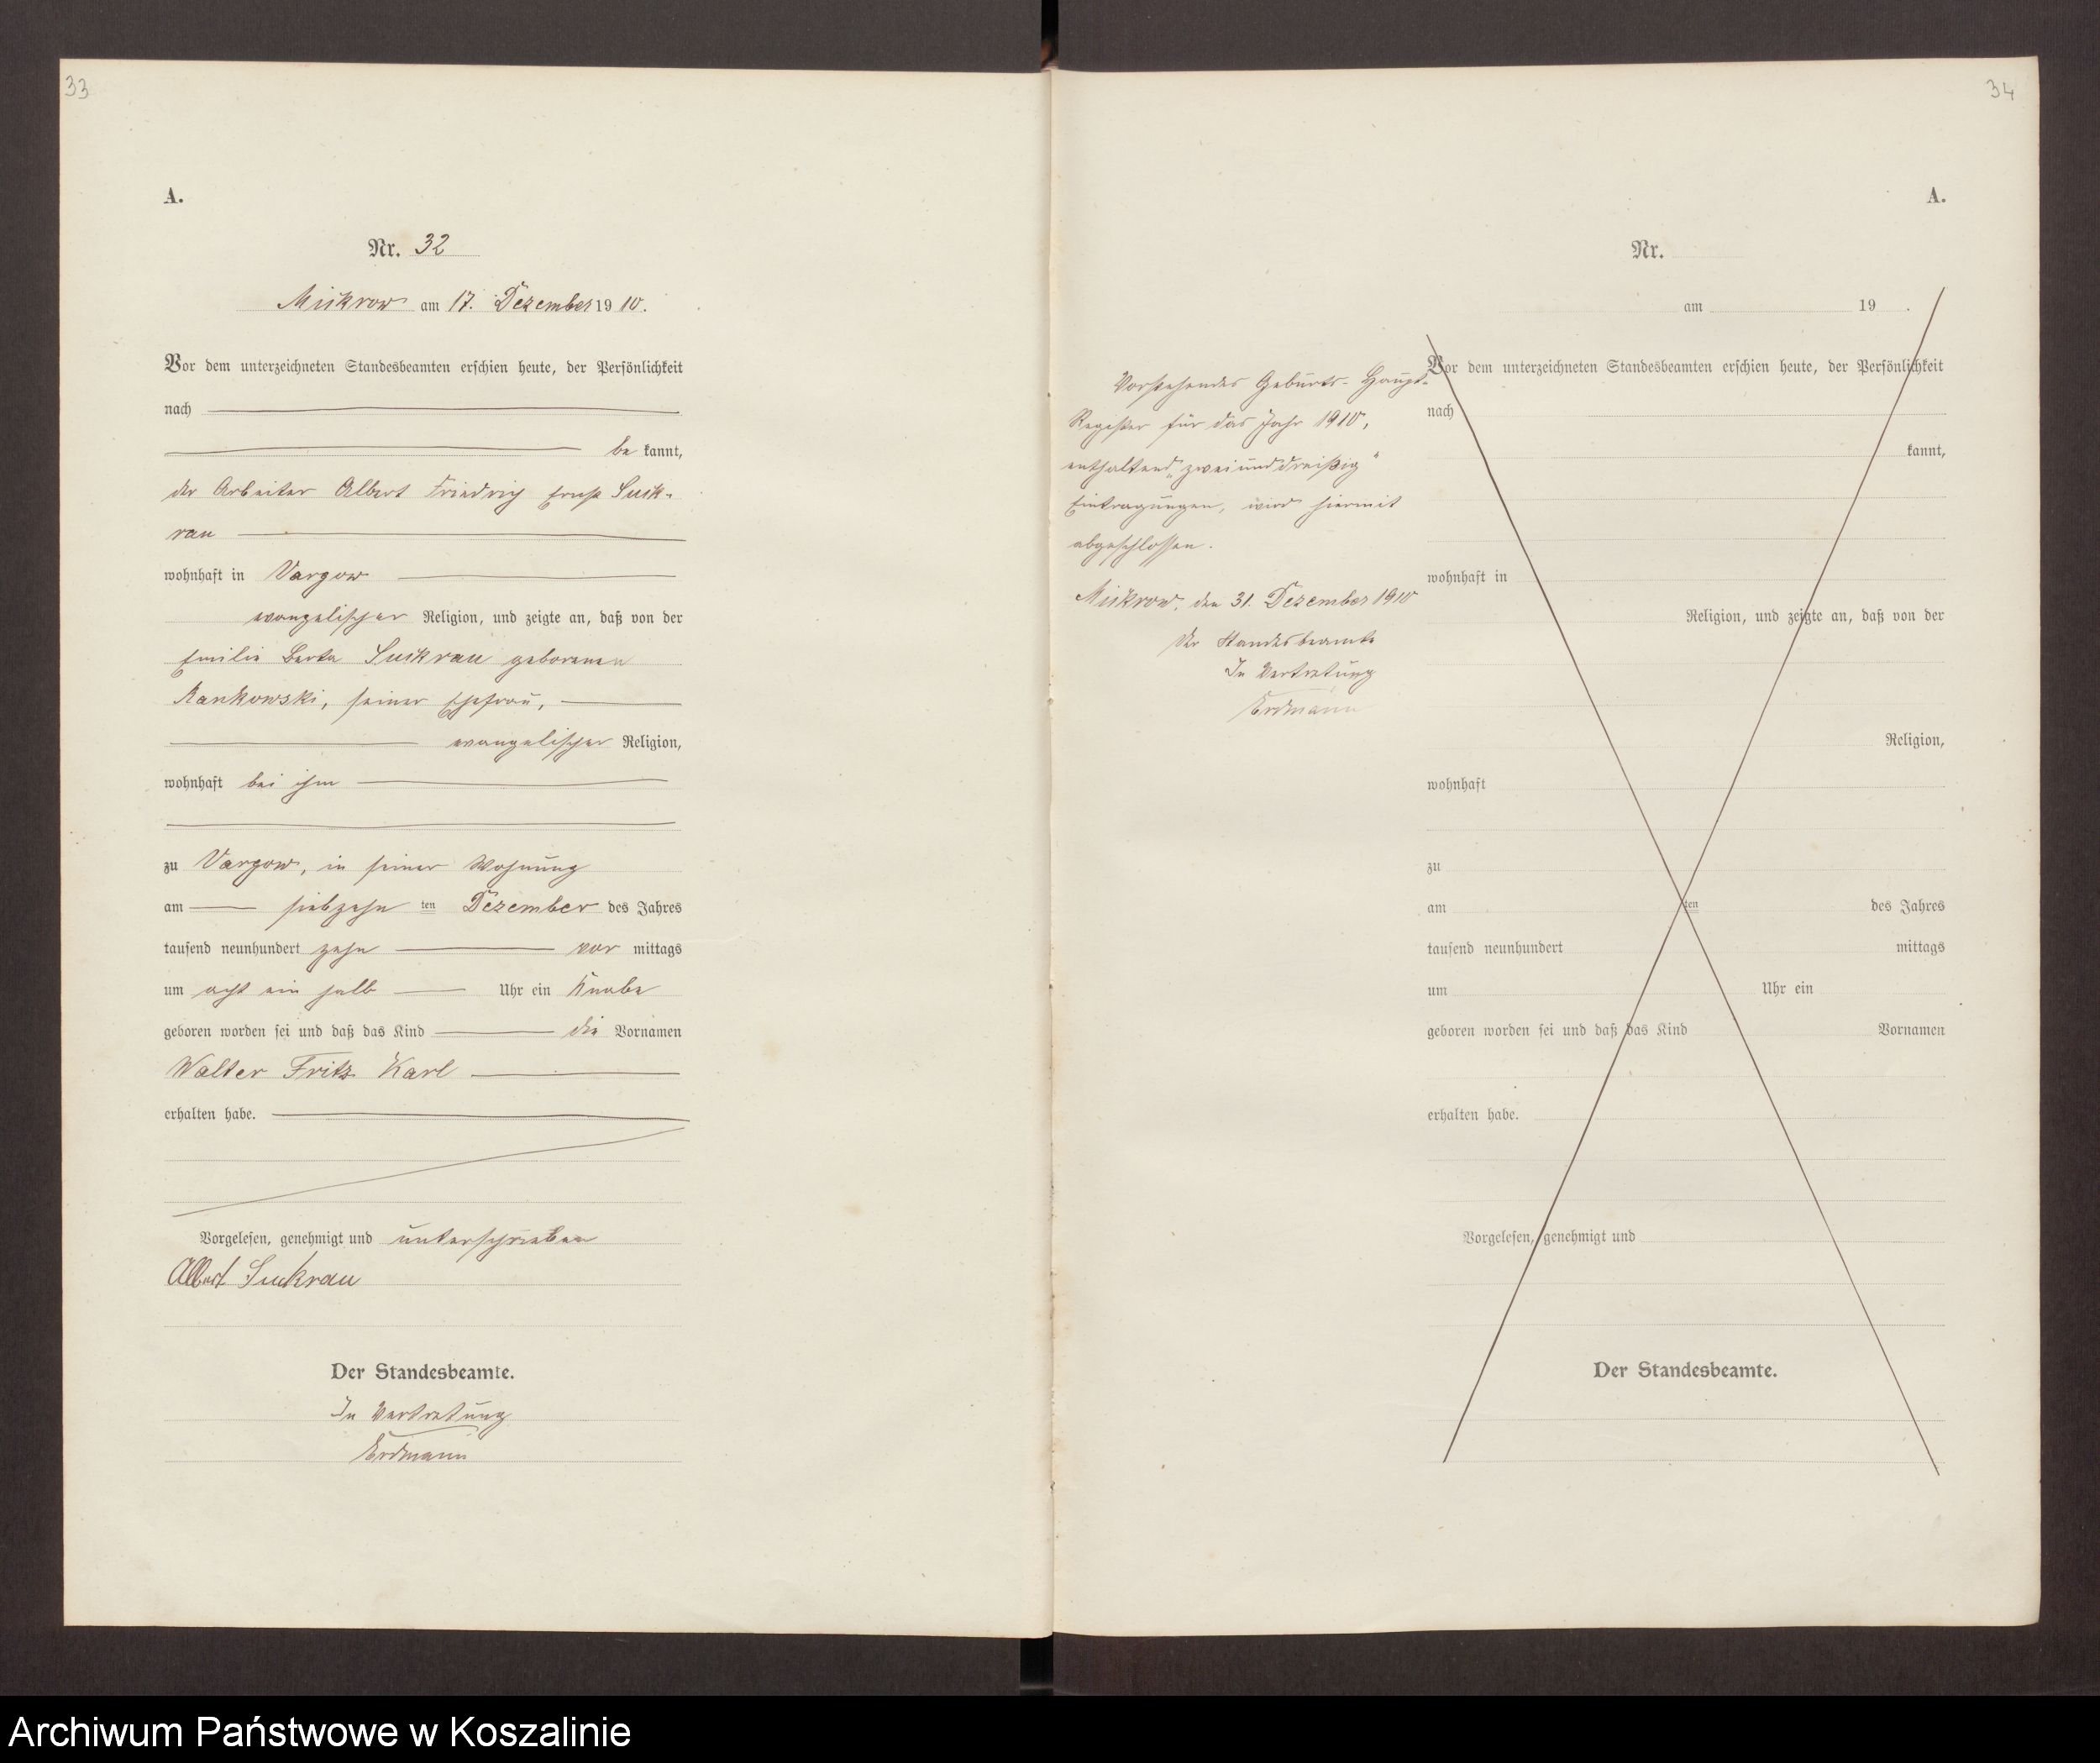 33
A.
Nr. 32
Mickrow am 17. Dezember 1910.
Vor dem unterzeichneten Standesbeamten erschien heute, der Persönlichkeit
nach
be kannt,
der Arbeiter Albert Friedrich Ernst Suck-
rau
wohnhaft in Vargow
evangelischer Religion, und zeigte an, daß von der
Emilie Berta Suckrau geborenen
Kankowski, seiner Ehefrau,
evangelischer Religion,
wohnhaft bei ihm
zu Vargow, in seiner Wohnung
am siebzehn ten Dezember des Jahres
tausend neunhundert zehn vor mittags
um acht ein halb Uhr ein Knabe
geboren worden sei und daß das Kind die Vornamen
Walter Fritz Karl
erhalten habe.
Vorgelesen, genehmigt und unterschrieben
Albert Suckrau
Der Standesbeamte.
In Vertretung
Erdmann
34
A.
Nr.
am 19 .
Vor dem unterzeichneten Standesbeamten erschien heute, der Persönlichkeit
nach
kannt,
wohnhaft in
Religion, und zeigte an, daß von der
Religion,
wohnhaft
zu
am ten des Jahres
tausend neunhundert mittags
um Uhr ein
geboren worden sei und daß das Kind Vornamen
erhalten habe.
Vorgelesen, genehmigt und
Der Standesbeamte.
Vorstehendes Geburts-Haupt-
Register für das Jahr 1910,
enthaltend „zweiunddreißig"
Eintragungen, wird hiermit
abgeschlossen.
Mickrow, den 31. Dezember 1910
Der Standesbeamte
In Vertretung
Erdmann
Archiwum Państwowe w Koszalinie